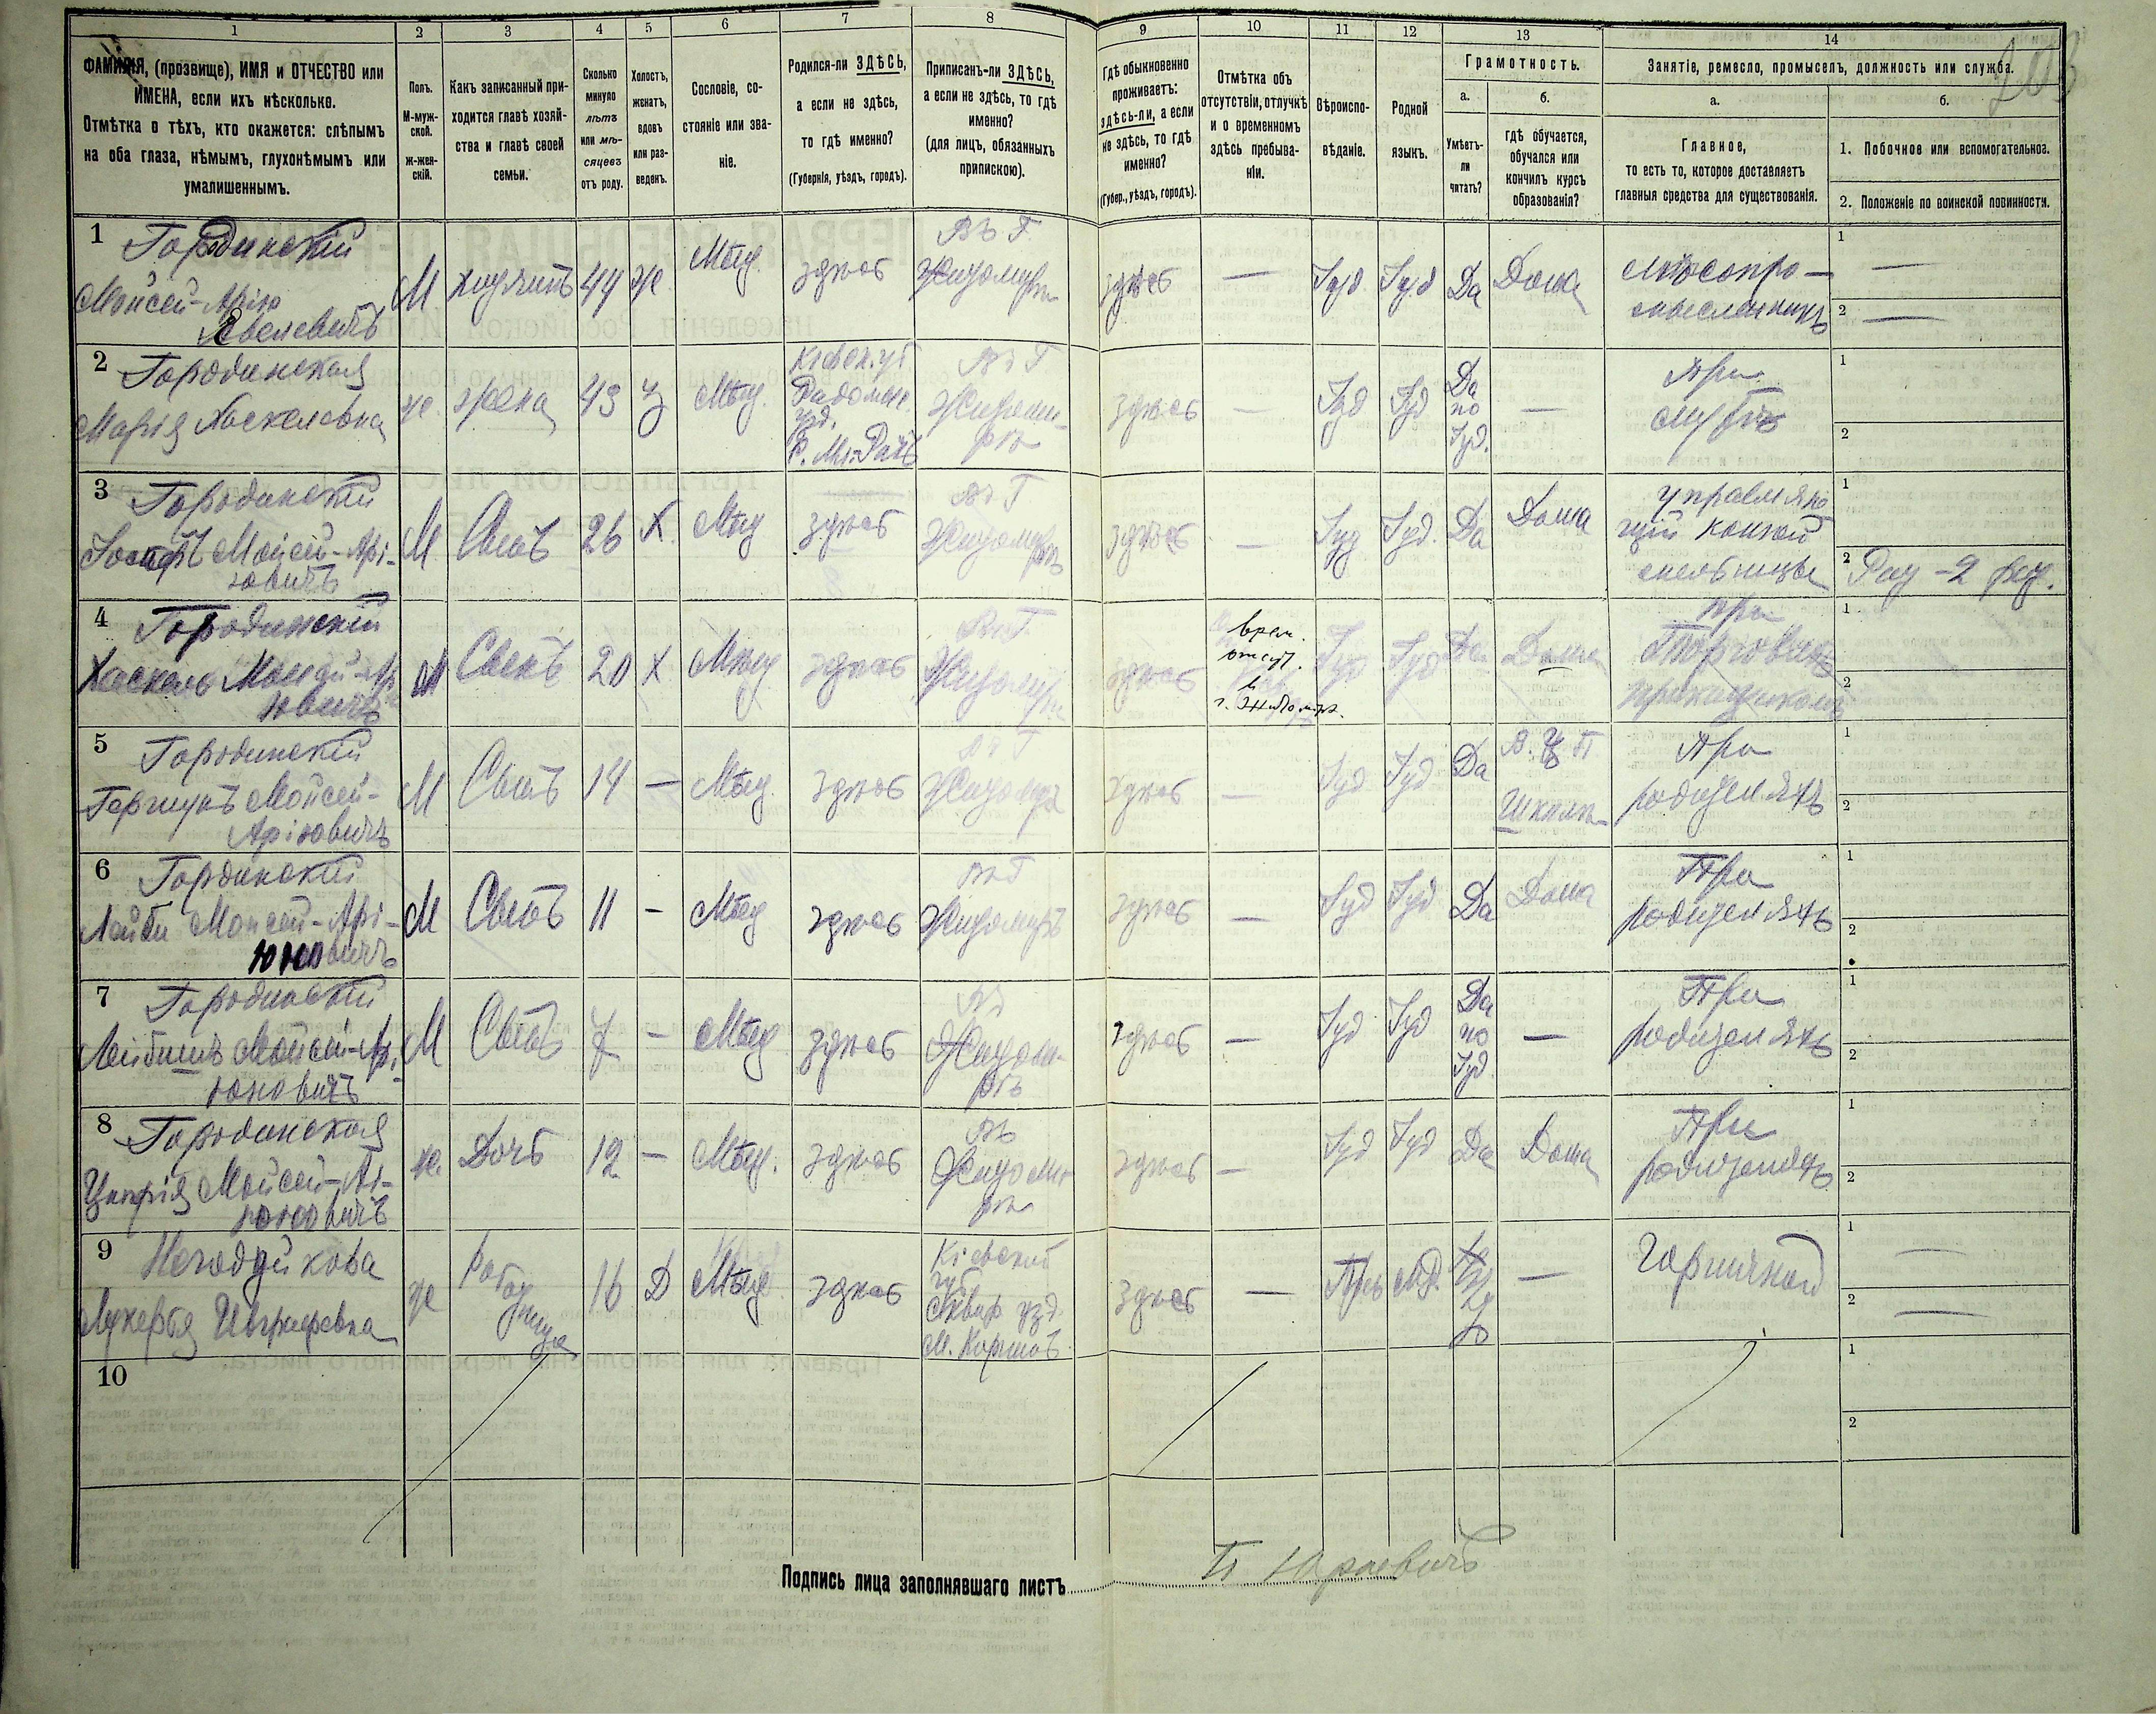 1 2 3 4 5 6 7 8 9 10 11 12 13 14
ФАМИЛІЯ, (прозвище), ИМЯ и ОТЧЕСТВО или
ИМЕНА, если ихъ нѣсколько.
Отмѣтка о тѣхъ, кто окажется: слѣпымъ
на оба глаза, нѣмымъ, глухонѣмымъ или
умалишеннымъ.
Полъ.
М-муж-
ской.
ж-жен-
скій.
Какъ записанный при-
ходится главѣ хозяй-
ства и главѣ своей
семьи.
Сколько
минуло
лѣтъ
или мѣ-
сяцевъ
отъ роду.
Холостъ,
женатъ,
вдовъ
или раз-
веденъ.
Сословіе, со-
стояніе или зва-
ніе.
Родился-ли ЗДѢСЬ,
а если не здѣсь,
то гдѣ именно?
(Губернія, уѣздъ, городъ).
Приписанъ-ли ЗДѢСЬ,
а если не здѣсь, то гдѣ
именно?
(для лицъ, обязанныхъ
припискою).
Гдѣ обыкновенно
проживаетъ:
здѣсь-ли, а если
не здѣсь, то гдѣ
именно?
(Губер., уѣздъ, городъ).
Отмѣтка объ
отсутствіи, отлучкѣ
и о временномъ
здѣсь пребыва-
ніи.
Вѣроиспо-
вѣданіе.
Родной
языкъ.
Грамотность.
а.
Умѣетъ-
ли
читать?
б.
гдѣ обучается,
обучался или
кончилъ курсъ
образованія?
Занятіе, ремесло, промыселъ, должность или служба.
а.
Главное,
то есть то, которое доставляетъ
главныя средства для существованія.
б.
1. Побочное или вспомогательное.
2. Положеніе по воинской повинности.
1 Городинскій
Мойсей-Арію
М хозяинъ 44 ж Мѣщ. здѣсь
Въ Г.
Житомірѣ
здѣсь — Іуд Іуд Да Дома
лѣсопро-
мысленникъ
1 —
2 —
2 Городинская
Марія Хаскеловна
ж. жена 43 З Мѣщ.
Кіевск. губ
Радомыс.
уѣд.
Въ Г
Житомі-
рѣ
здѣсь — Іуд Іуд
Да
по
Іуд.
—
При
мужѣ
1
2
3 Городинскій
Іосифъ Мойсей-Арі-
ювичъ
М Сынъ 26 Х Мѣщ здѣсь
Въ Г
Житомірѣ
здѣсь — Іуд Іуд. Да Дома
управляю
щій конной
мельницы
1
2
4 Городинскій
Хаскель Мойсей-Ар
ювичъ
М Сынъ 20 Х Мѣщ здѣсь
Въ Г.
Житомірѣ
здѣсь
врем.
отсут.
в
г. Житомірѣ.
Іуд Іуд Да Дома
при
Торговлѣ
прикащикомъ
1
2
5 Городинскій
Гершунъ Мойсей-
Аріювичъ
М Сынъ 14 — Мѣщ. здѣсь
Въ Г
Житомірѣ
здѣсь — Іуд Іуд. Да
При
родителяхъ
1
2
6 Гординскій
Лейби Мойсей-Арі-
М Сынъ 11 — Мѣщ здѣсь
Въ Г
Житомірѣ
здѣсь — Іуд Іуд Да Дома
При
родителяхъ
1
2
7 Городинскій
Лейбишъ Мойсей-Арі-
юновичъ
М Сынъ 7 — Мѣщ здѣсь
Въ
Житомі-
рѣ
здѣсь — Іуд Іуд
Да
по
Іуд
—
При
родителяхъ
1
2
8 Городинская
ж. Дочь 12 — Мѣщ. здѣсь
Въ
Житомі-
рѣ
здѣсь — Іуд Іуд Да Дома
При
родителяхъ
1
2
9
ж
Работ
ница
16 Д Мѣщ здѣсь
Кіевской
губ
Сквир уѣзд.
здѣсь — —
горничной
1 —
2 —
10
1
2
Подпись лица заполнявшаго листъ